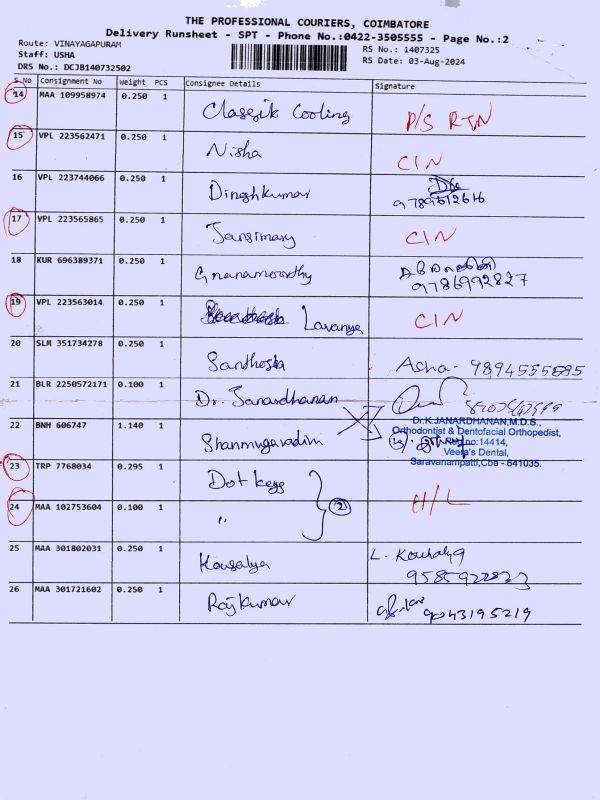 THE PROFESSIONAL COURIERS, COIMBATORE
Delivery Runsheet - SPT - Phone No.:0422-3505555 - Page No.:2
Route: VINAYAGAPURAM
Staff: USHA
DRS No.: DCJB140732502
RS No.: 1407325
RS Date: 03-Aug-2024
S.No Consignment No Weight PCS Consignee Details Signature
14 MAA 109958974 0.250 1 Classik Cooling P/S RTN
15 VPL 223562471 0.250 1 Nisha CIN
16 VPL 223744066 0.250 1 Dineshkumar 9789612616
17 VPL 223565865 0.250 1 Jansimary CIN
18 KUR 696389371 0.250 1 Gnanamoorthy 9786992827
19 VPL 223563014 0.250 1 Lavanya CIN
20 SLM 351734278 0.250 1 Santhosh Asha- 9894555585
21 BLR 2250572171 0.100 1 Dr. Janardhanan
22 BNH 606747 1.140 1 Shanmugavadivu
Dr.K.JANARDHANAN,M.D.S.,
Orthodontist & Dentofacial Orthopedist,
Reg.no:14414,
Veera's Dental,
Saravanampatti,Cbe - 641035.
23 TRP 7768034 0.295 1 Dot kegs H/L
24 MAA 102753604 0.100 1 " 2
25 MAA 301802031 0.250 1 Kousalya L. Kouhalya
9585922823
26 MAA 301721602 0.250 1 Rajkumar 9043195219